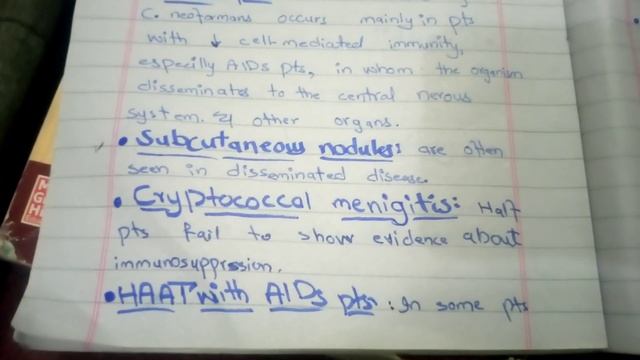 C. neofamans occurs mainly in pts
with ↓ cell-mediated immunity,
especilly AIDs pts, in whom the organism
disseminates to the central nerous
system & other organs.
• Subcutaneous nodules: are often
seen in disseminated disease.
• Cryptococcal menigitis: Half
pts fail to show evidence about
immunosuppression.
• HAAT with AIDs pts: In some pts